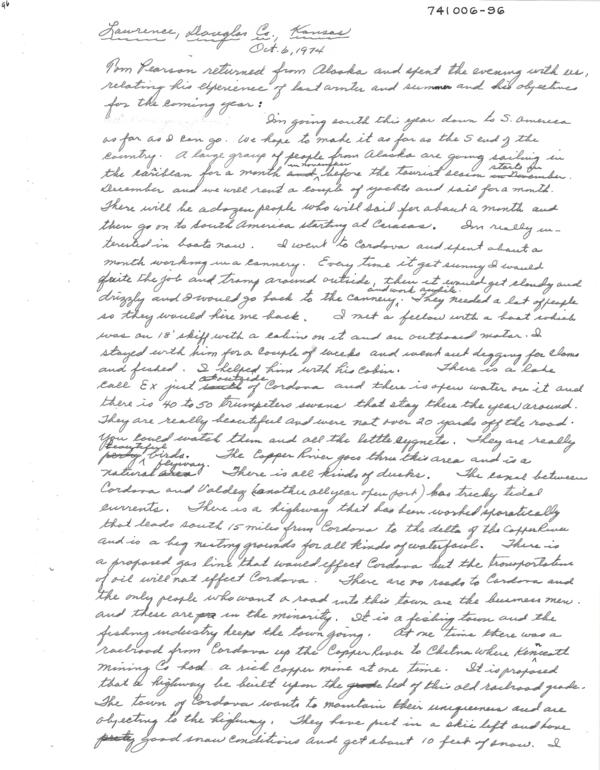 96
741006-96
Lawrence, Douglas Co., Kansas
Oct. 6, 1974
Tom Pearson returned from Alaska and spent the evening with us,
relating his experience of last winter and summer and his objectives
for the coming year:
I'm going south this year down to S. America
as far as I can go. We hope to make it as far as the S end of the
country. A large group of people from Alaska are going sailing in
the caribean for a month in november before the tourist season starts in December.
December and we will rent a couple of yachts and sail for a month.
There will be a dozen people who will sail for about a month and
then go on to South America starting at Caracas. I'm really in-
terested in boats now. I went to Cordova and spent about a
month working in a cannery. Every time it got sunny I would
quite the job and tramp around outside, then it would get cloudy and
drizzly and I would go back to the cannery and work awhile. They needed a lot of people
so they would hire me back. I met a fellow with a boat which
was an 18' skiff with a cabin on it and an outboard motor. I
stayed with him for a couple of weeks and went out digging for clams
and fished. I helped him with his cabin. There is a lake
call Ex just outside of Cordova and there is open water on it and
there is 40 to 50 trumpeters swans that stay there the year around.
They are really beautiful and were not over 20 yards off the road.
You could watch them and all the little cygnets. They are really
beautiful birds. The Copper River goes thru this area and is a
natural flyway. There is all kinds of ducks. The canal between
Cordova and Valdez (another all year open port) has tricky tidal
currents. There is a highway that has been worked sporatically
that leads south 15 miles from Cordova to the delta of the Copper River
and is a big nesting grounds for all kinds of waterfowl. There is
a proposed gas line that would effect Cordova but the transportation
of oil will not effect Cordova. There are no roads to Cordova and
the only people who want a road into this town are the business men.
and these are in the minority. It is a fishing town and the
fishing industry keeps the town going. At one time there was a
railroad from Cordova up the Copper River to Chitna where Kenicott
Mining Co had a rich copper mine at one time. It is proposed
that a highway be built upon the bed of this old railroad grade.
The town of Cordova wants to maintain their uniqueness and are
objecting to the highway. They have put in a skii left and have
good snow conditions and get about 10 feet of snow. I